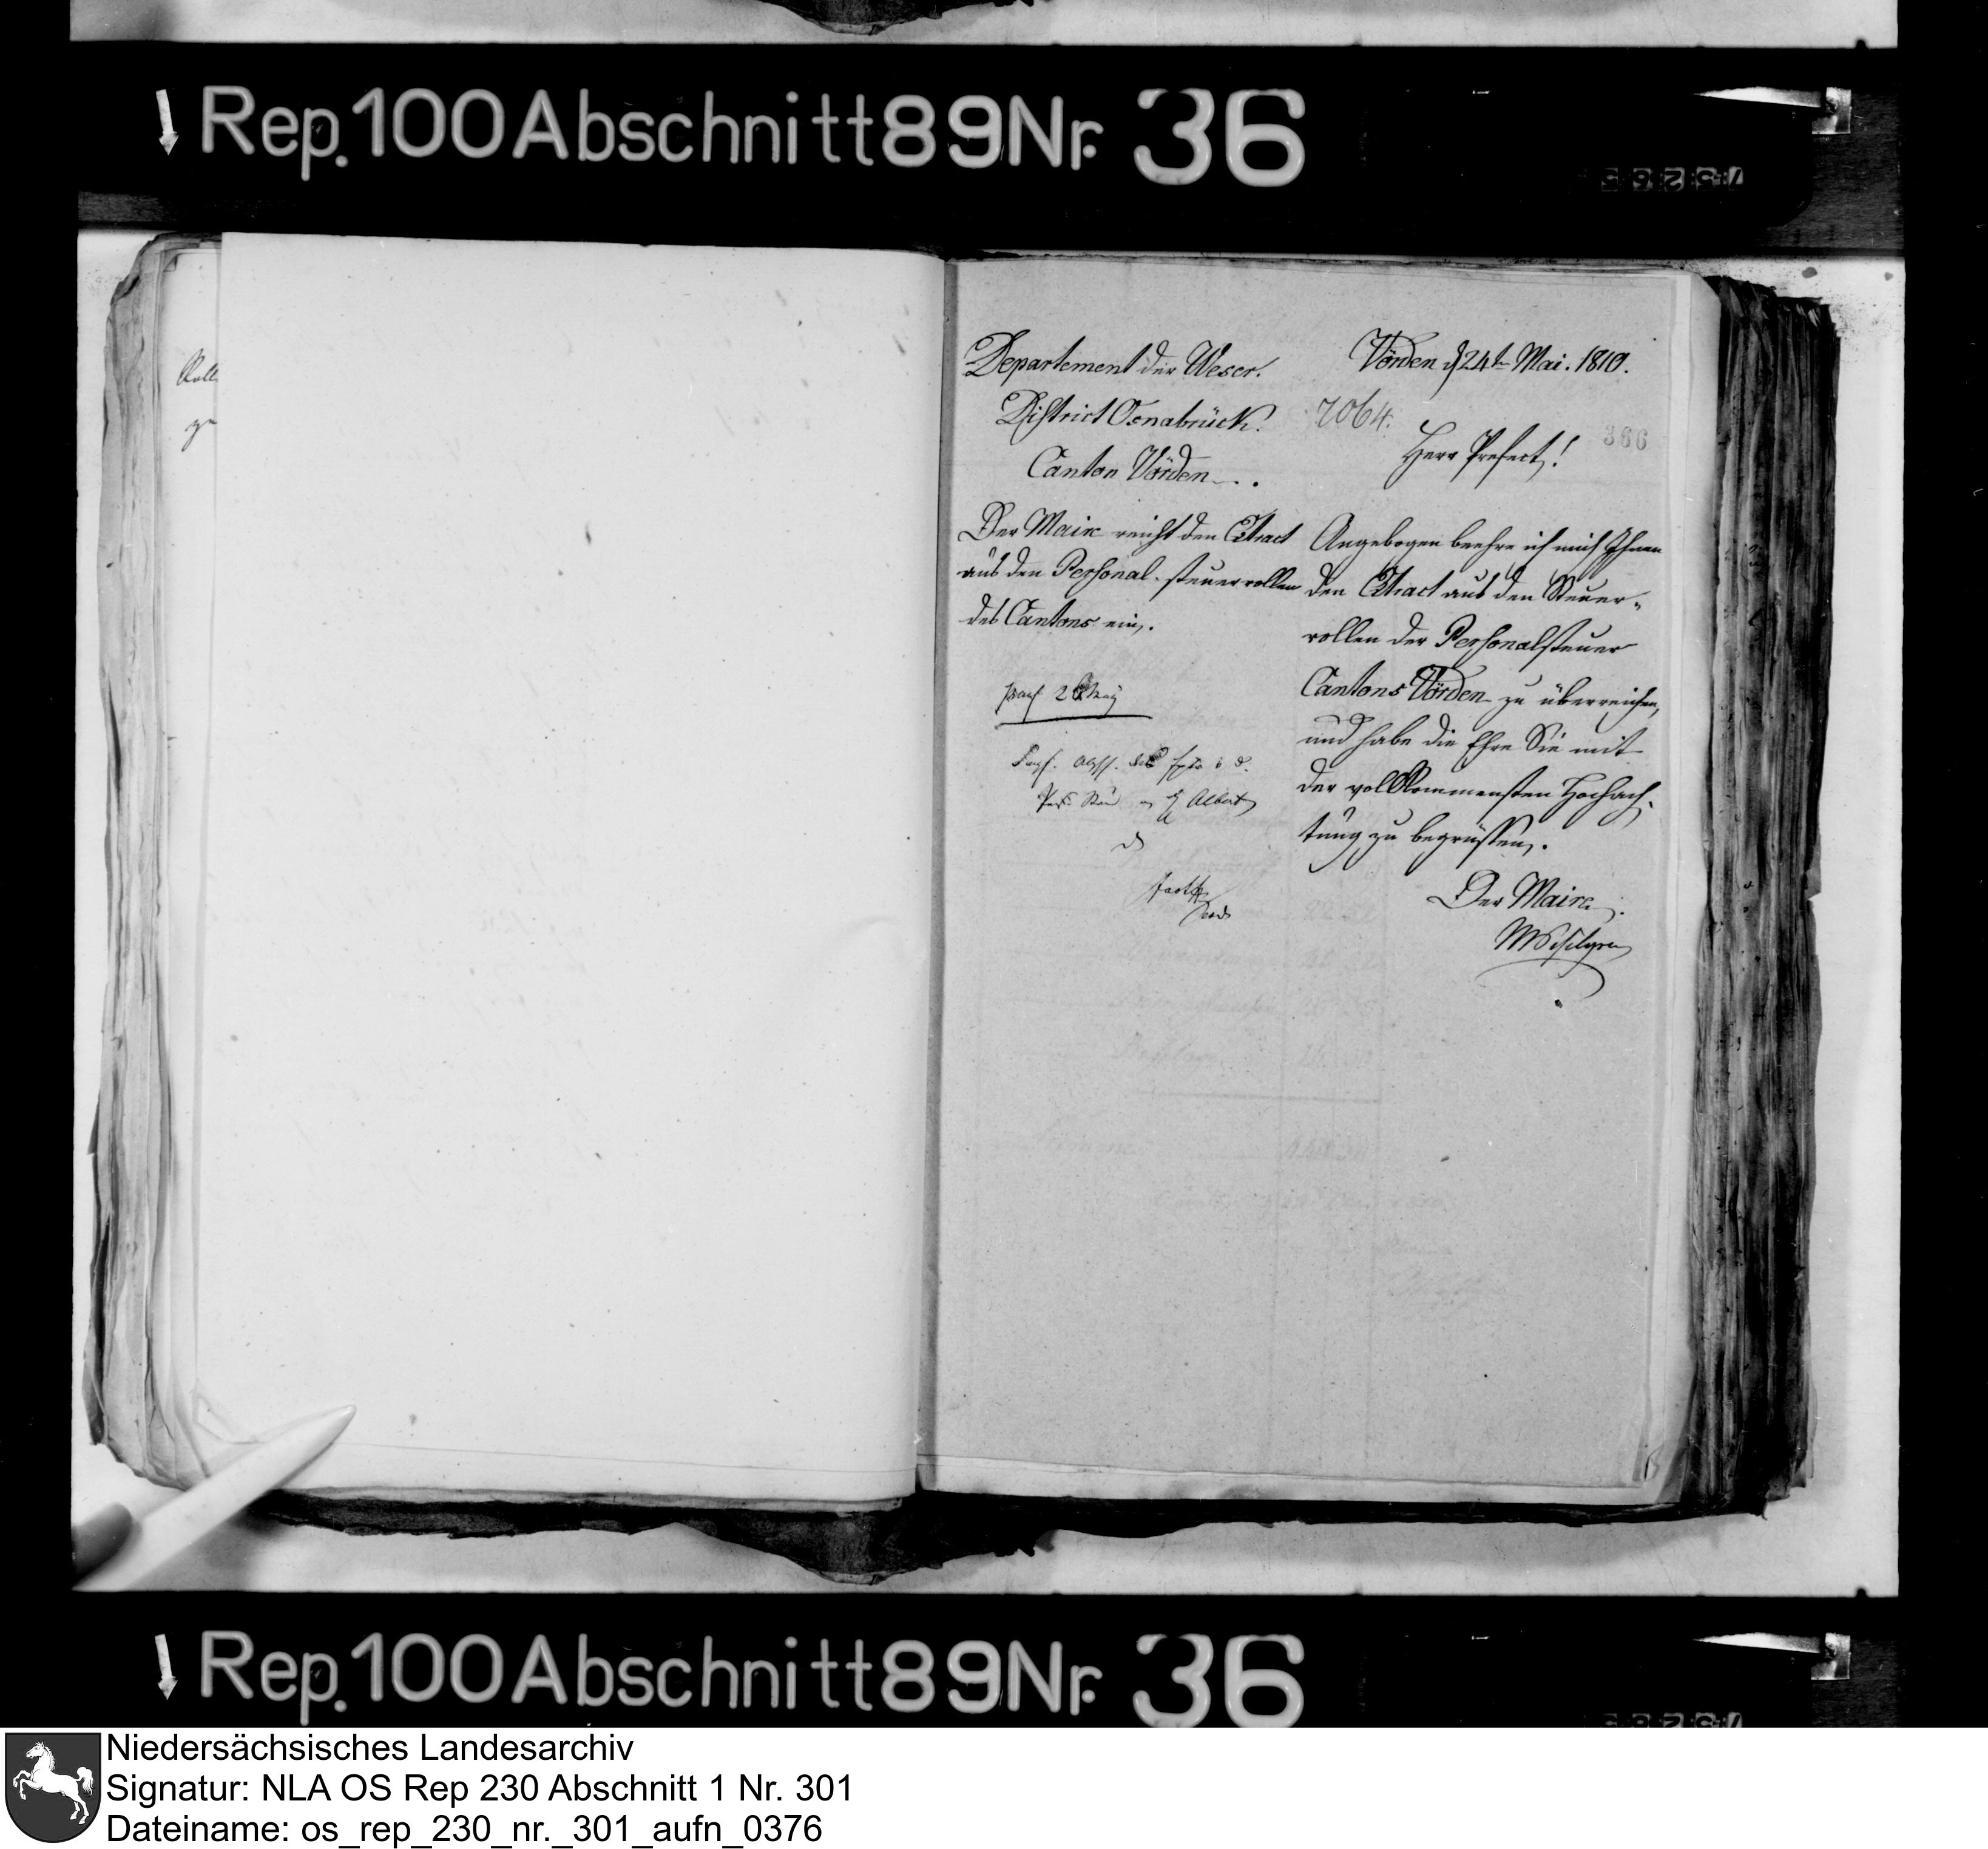 Rep. 100 Abschnitt 89 Nr. 36
Departement der Weser.
District Osnabrück.
Canton Vörden
Der Maire reicht den Extract
aus den Personal-steuerrollen
des Cantons ein.
Vörden d 24t Mai. 1810.
7064.
366
Herr Prefect!
Angebogen beehre ich mich Ihnen
den Extract aus den Steuer-
rollen der Personalsteuer
Cantons Vörden zu überreichen,
und habe die Ehre Sie mit
der vollkommensten Hochach-
tung zu begrüssen.
Der Maire
Rep. 100 Abschnitt 89 Nr. 36
Niedersächsisches Landesarchiv
Signatur: NLA OS Rep 230 Abschnitt 1 Nr. 301
Dateiname: os_rep_230_nr._301_aufn_0376